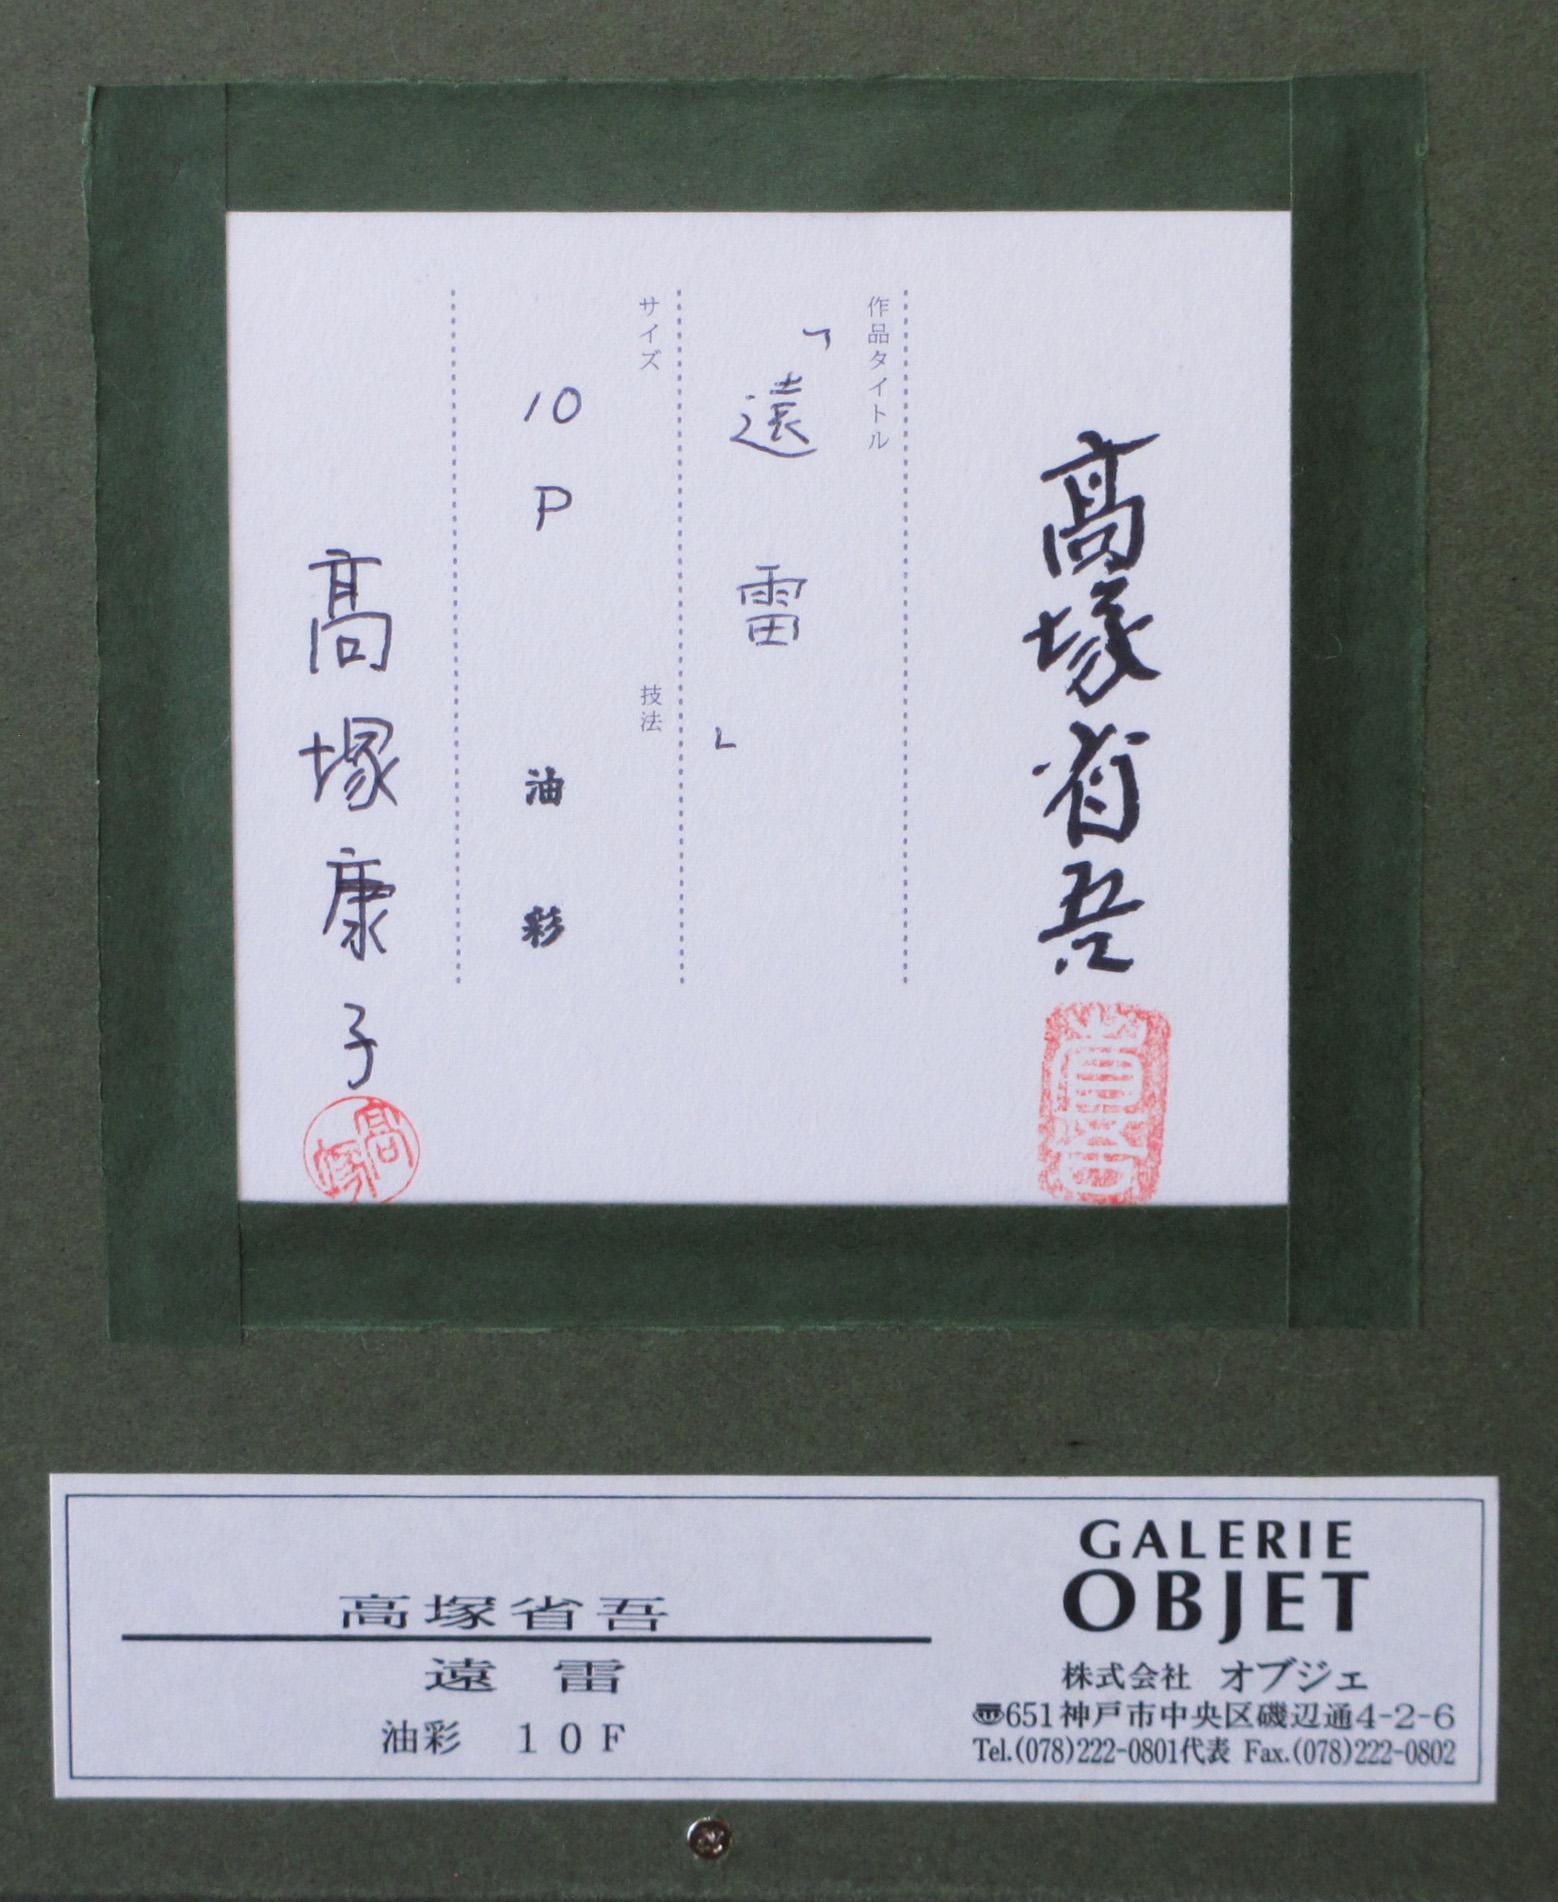 高塚省吾
省吾
作品タイトル
「遠雷」
サイズ
10P
技法
油彩
高塚康子
高塚
高塚省吾
遠 雷
油彩 10F
GALERIE
OBJET
株式会社 オブジェ
〠651神戸市中央区磯辺通4-2-6
Tel.(078)222-0801代表 Fax.(078)222-0802